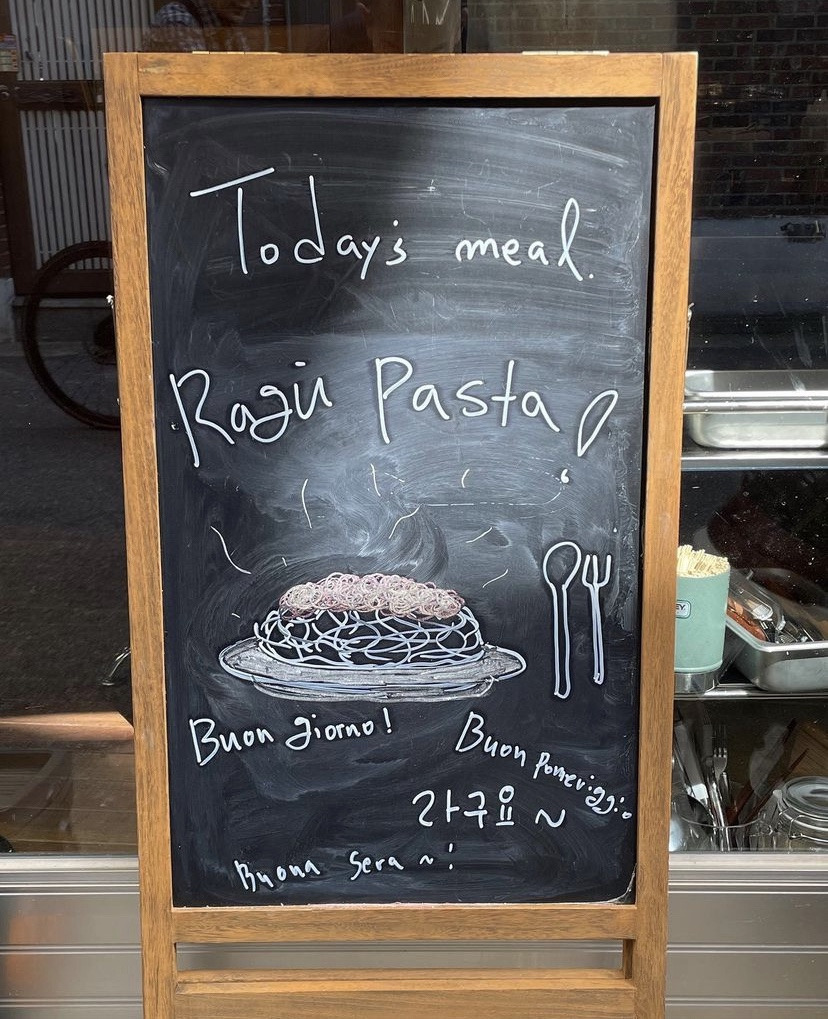 Today's meal.
Ragù Pasta!
Buon giorno!
Buon Pomeriggio
라구요~
Buona Sera ~!